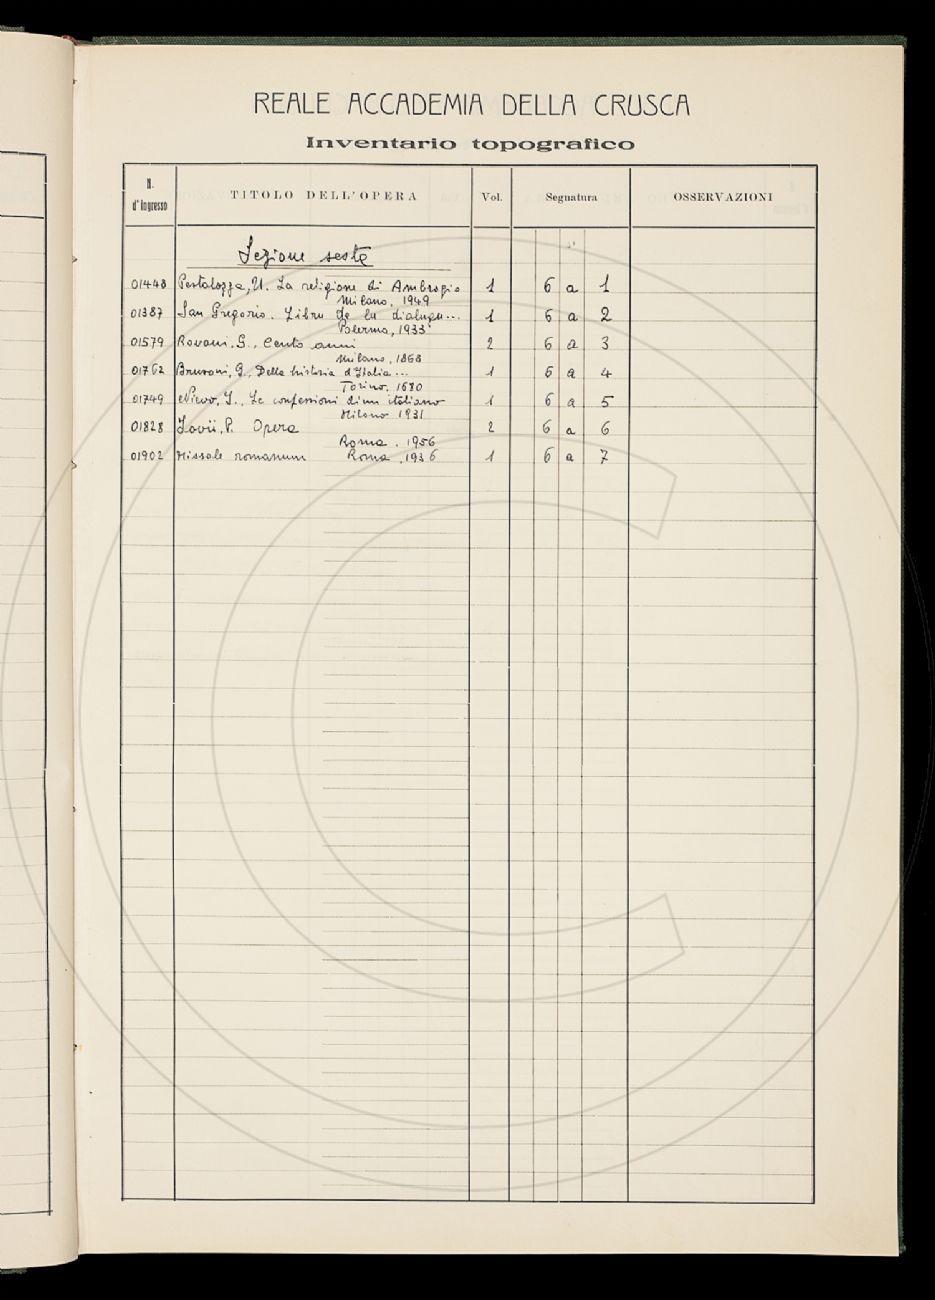 REALE ACCADEMIA DELLA CRUSCA
Inventario topografico
N. d'ingresso TITOLO DELL'OPERA Vol. Segnatura OSSERVAZIONI
Sezione sesta
01448 Pestalozza, U. La religione di Ambrogio 1 6 a 1
Milano, 1949
01387 San Gregorio. Libru de lu dialugu... 1 6 a 2
Palermo, 1933
01579 Rovani, G., Cento anni 2 6 a 3
Milano, 1868
01762 Brusoni, G., Della historia d'Italia... 1 6 a 4
Torino, 1680
01749 Nievo, I., Le confessioni di un italiano 1 6 a 5
Milano 1931
01828 Jovii, P. Opera 2 6 a 6
Roma, 1956
01902 Missale romanum Roma, 1936 1 6 a 7